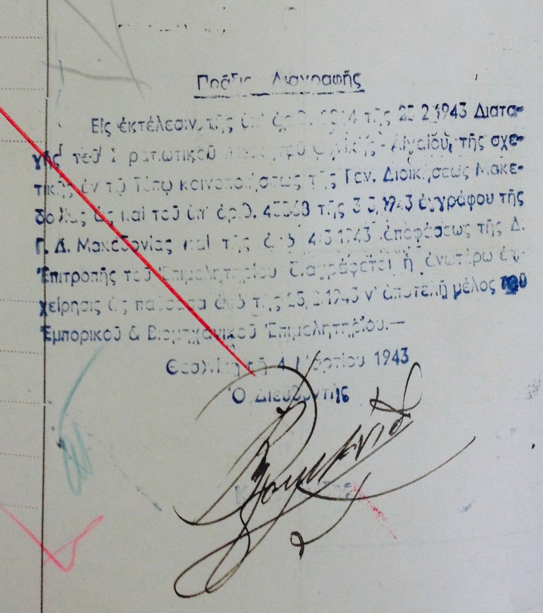 Πράξις Διαγραφῆς
Εἰς ἐκτέλεσιν τῆς ὑπ' ἀρ. τῆς 25 2 1943 Διατα-
γῆς τοῦ Στρατιωτικοῦ - Αἰγαίου, τῆς σχε-
τικῆς ἐν τῷ Τύπῳ κοινοποιήσεως τῆς Γεν. Διοικήσεως Μακε-
δονίας ὡς καὶ τοῦ ὑπ' ἀριθ. τῆς 3 3 1943 ἐγγράφου τῆς
Γ. Δ. Μακεδονίας καὶ τῆς ἀπὸ 4 3 1943 ἀποφάσεως τῆς Δ.
Ἐπιτροπῆς τοῦ Ἐπιμελητηρίου διαγράφεται ἡ ἀνωτέρω ἐπι-
χείρησις ὡς παύσασα ἀπὸ τῆς 25, 2 1943 ν' ἀποτελῇ μέλος τοῦ
Ἐμπορικοῦ & Βιομηχανικοῦ Ἐπιμελητηρίου.—
Θεσ)νίκη τῇ 4 Μαρτίου 1943
Ὁ Διευθυντὴς